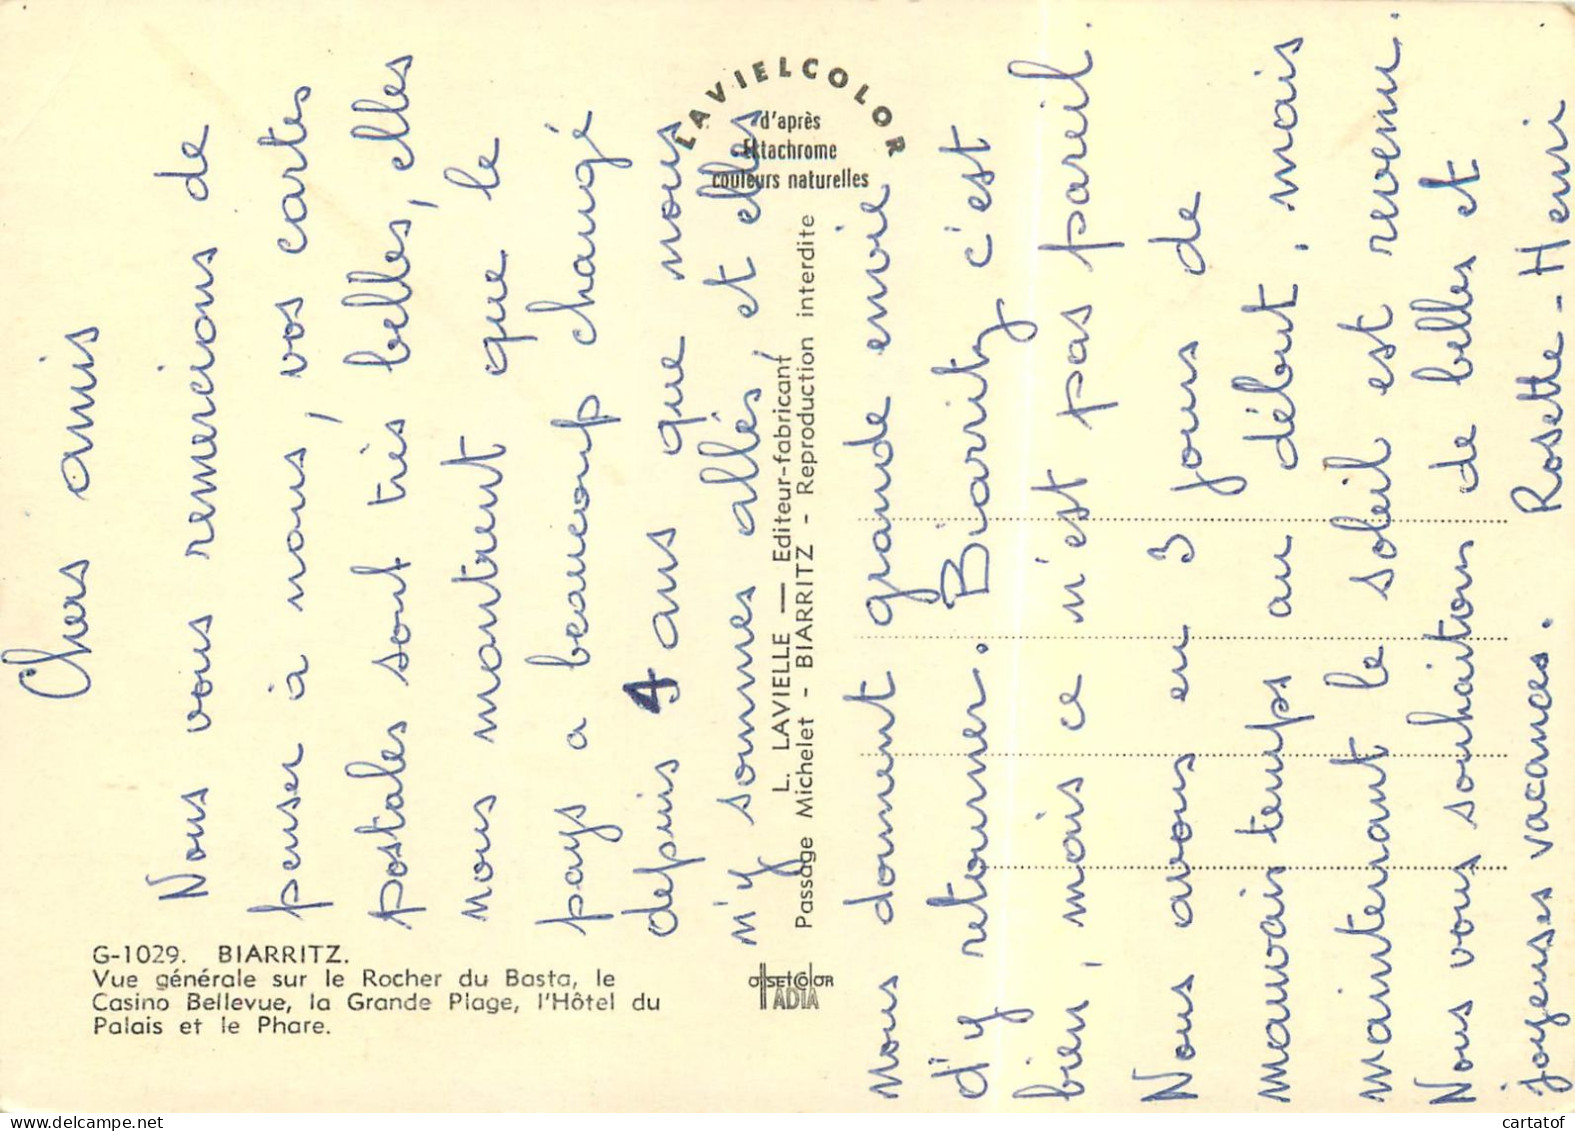 Chers amis
Nous vous remercions de
penser à nous, vos cartes
postales sont très belles, elles
nous montrent que le
pays a beaucoup changé
depuis 4 ans que nous
n'y sommes allés, et elles
nous donnent grande envie
d'y retourner. Biarritz c'est
bien, mais ce n'est pas pareil.
Nous avons eu 3 jours de
mauvais temps au début, mais
maintenant le soleil est revenu.
Nous vous souhaitons de belles et
joyeuses vacances. Rosette - Henri
LAVIELCOLOR
d'après
Ektachrome
couleurs naturelles
L. LAVIELLE — Editeur-fabricant
Passage Michelet - BIARRITZ - Reproduction interdite
G-1029. BIARRITZ.
Vue générale sur le Rocher du Basta, le
Casino Bellevue, la Grande Plage, l'Hôtel du
Palais et le Phare.
OFFSETCOLOR
IADIA
cartatof